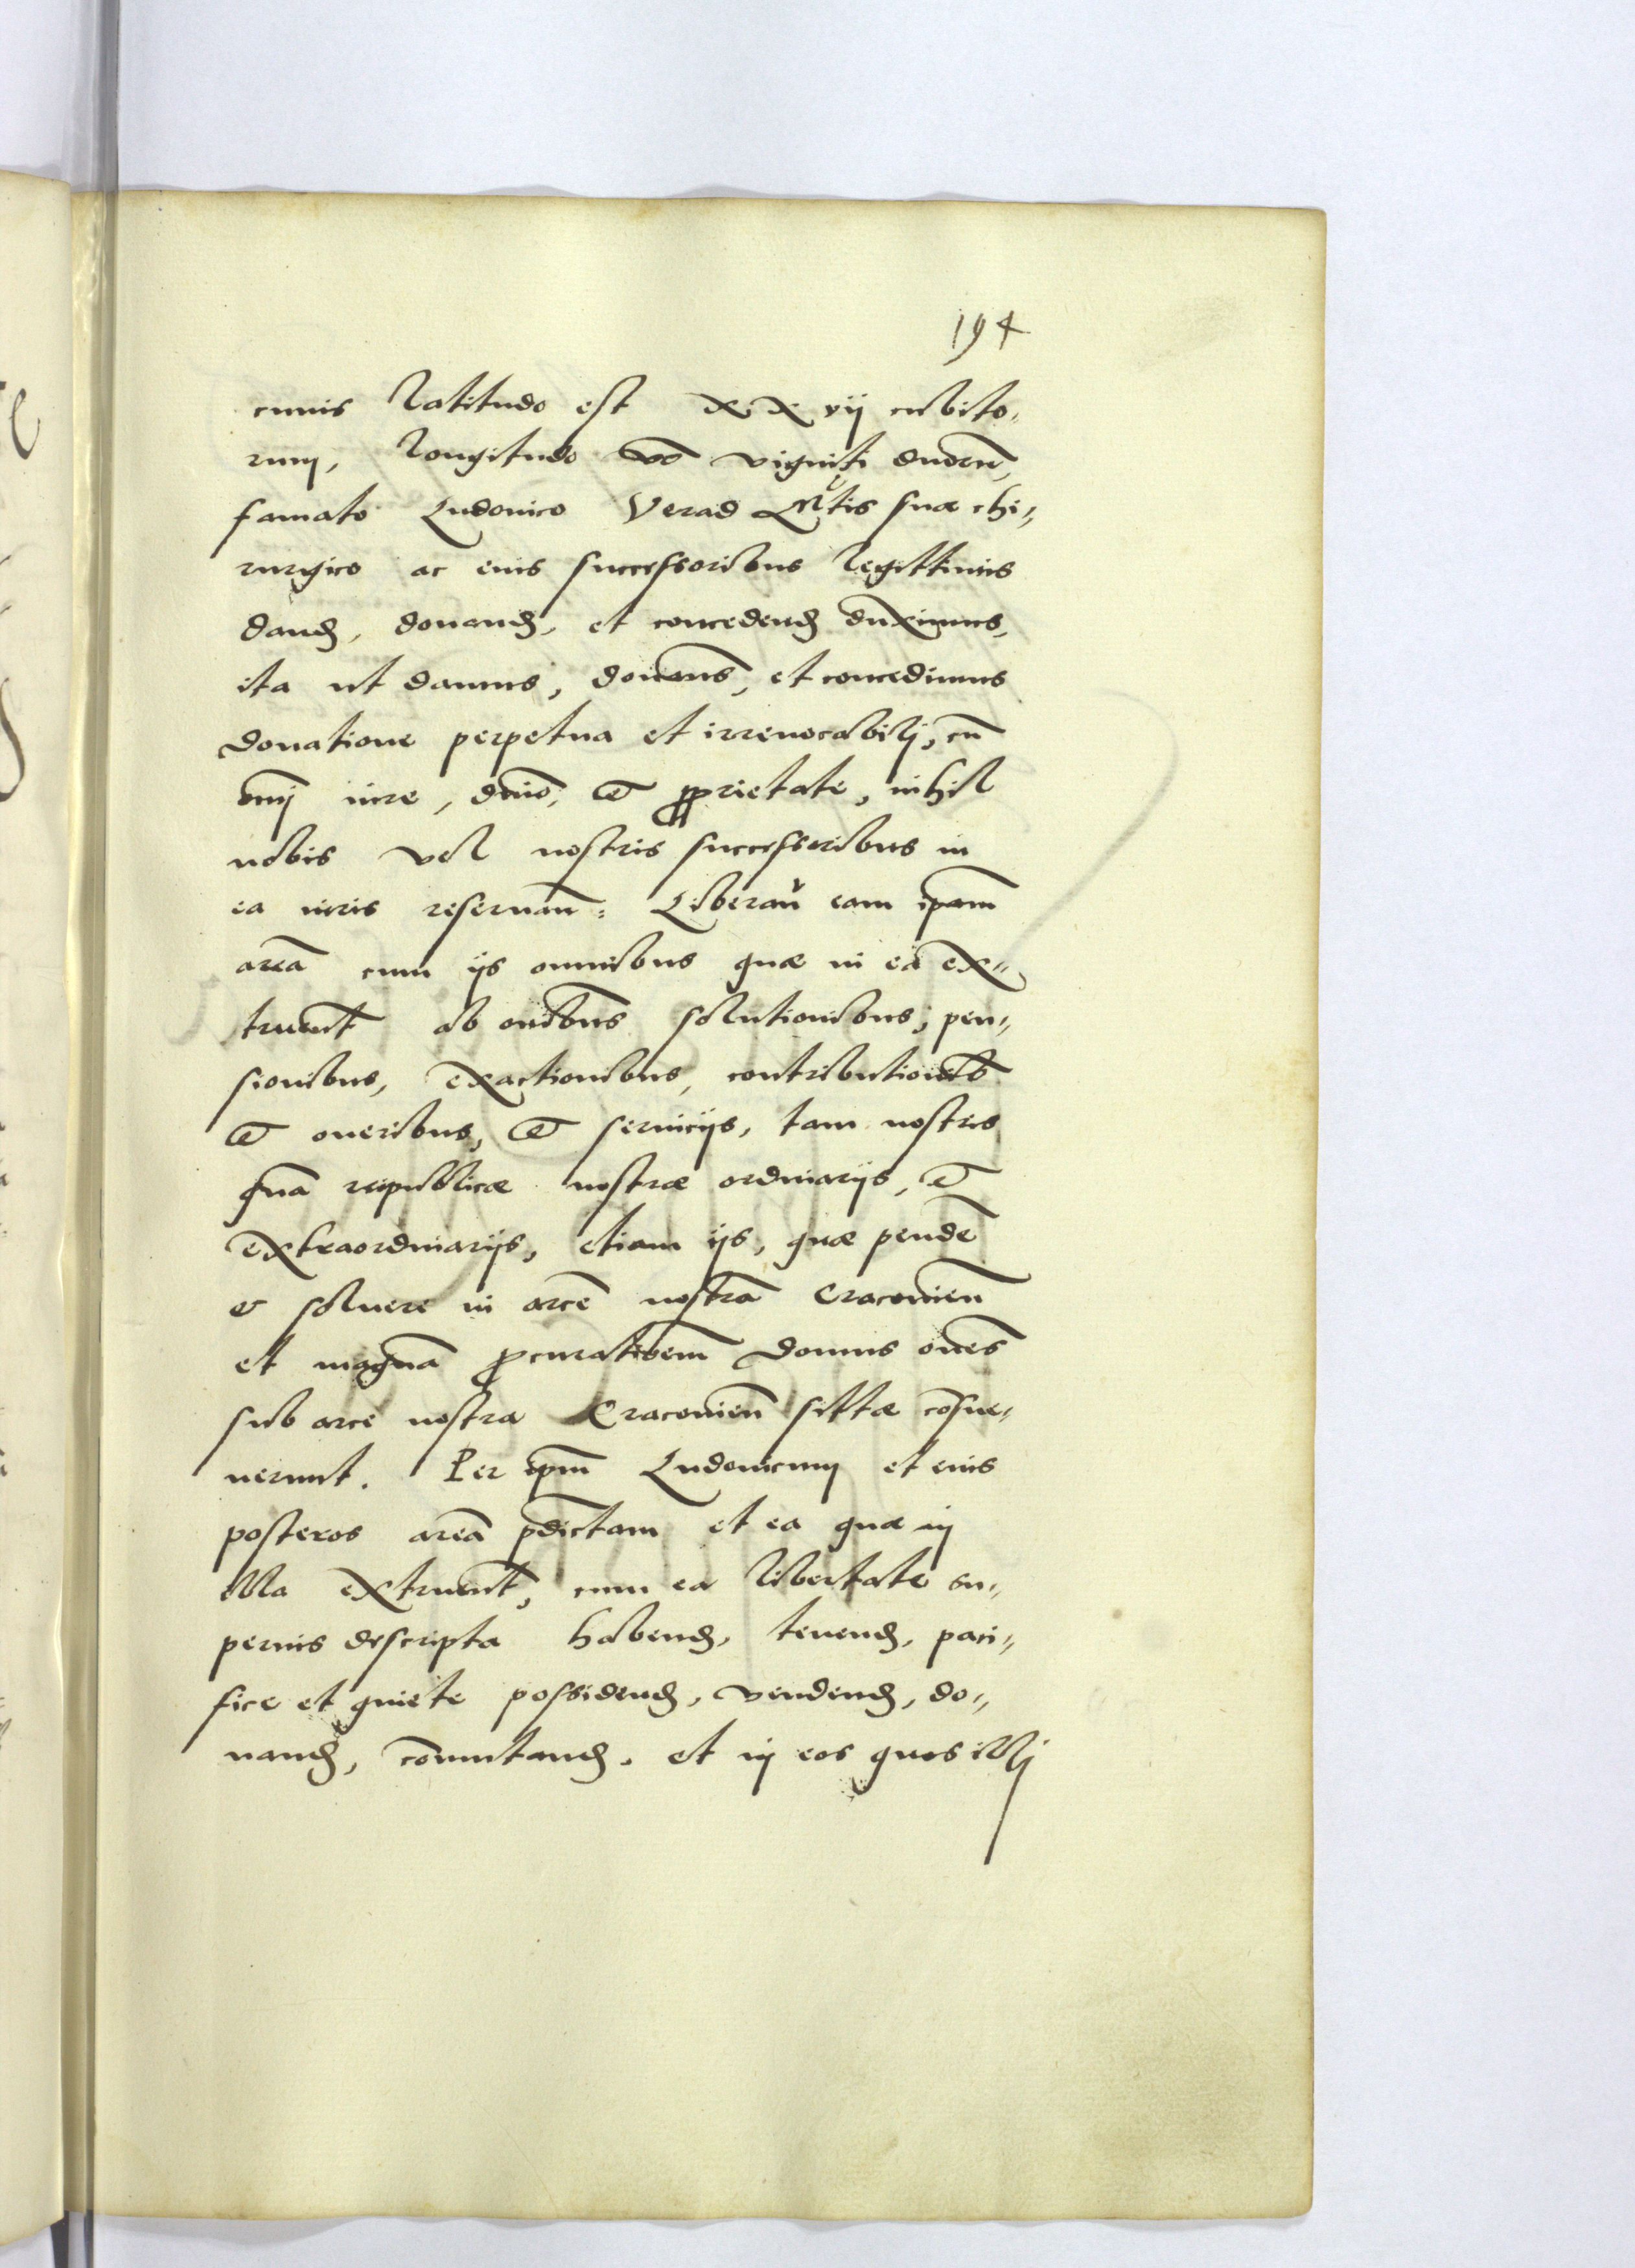 194
cuius latitudo est XX vij cubito,
rum, longitudo vō viginti duorū,
famato Ludouico Verad Mtis suæ chi„
rurgico ac eius successoribus legittimis
dand, donand, et concedend duximus,
ita ut damus, donams, et concedimus
donatione perpetua et irreuocabilj, cū
omj iure, dnio, et proprietate, nihil
nobis vel nostris successoribus in
ea iuris reseruan: Liberau eam ipam
areā cum ijs omnibus quæ in ea ex„
truent ab oībus solutionibus, pen„
sionibus, exactionibus, contributionibs
et oneribus, et seruicijs, tam nostris
quā reipublicæ nostræ ordinarijs, et
extraordinarijs, etiam ijs, quæ pende
e solueri in arcē nostrā Cracouien
et magnā pcurationem domus oēs
sub arce nostra Cracouien sittæ cōsue„
uerunt. Per ipm Ludouicum et eius
posteros areā pdictam et ea quæ in
illa extruent, cum ea libertate su„
perius descripta habend, tenend, paci„
fice et quiete possidend, vendend, do„
nand, cōmutand, et in eos quos illj